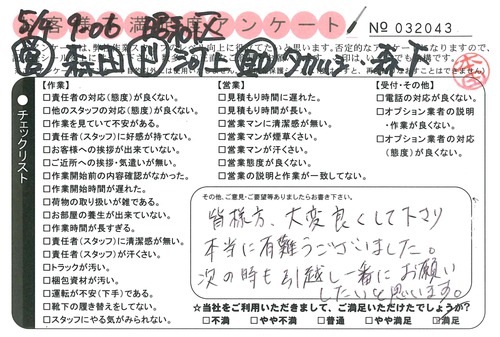 5/9 9:06 昭和区
お客様満足度アンケート
No 032043
【作業】
□責任者の対応(態度)が良くない。
□他のスタッフの対応(態度)が良くない。
□作業を見ていて不安がある。
□責任者(スタッフ)に好感が持てない。
□お客様への挨拶が出来ていない。
□ご近所への挨拶・気遣いが無い。
□作業開始前の内容確認がなかった。
□作業開始時間が遅れた。
□荷物の取り扱いが雑である。
□お部屋の養生が出来ていない。
□作業時間が長すぎる。
□責任者(スタッフ)に清潔感が無い。
□責任者(スタッフ)が汗くさい。
□トラックが汚い。
□梱包資材が汚い。
□運転が不安(下手)である。
□靴下の履き替えをしてない。
□スタッフにやる気がみられない。
【営業】
□見積もり時間に遅れた。
□見積もり時間が長い。
□営業マンに清潔感が無い。
□営業マンが煙草くさい。
□営業マンが汗くさい。
□営業態度が良くない。
□営業の説明と作業が一致してない。
【受付・その他】
□電話の対応が良くない。
□オプション業者の説明
・作業が良くない。
□オプション業者の対応
(態度)が良くない。
チェックリスト
その他、ご意見・ご要望等ありましたらお書き下さい。
皆様方、大変良くして下さり
本当に有難うございました。
次の時も引越し一番にお願い
したいと思います。
☆当社をご利用いただきまして、ご満足いただけたでしょうか?
□不満 □やや不満 □普通 □やや満足 ☑満足